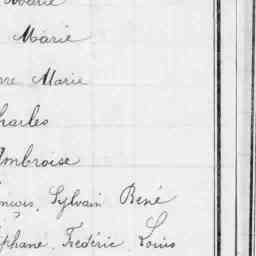 Marie
Marie
re Marie
harles
mbroise
nçois, Sylvain René
phane, Fréderic, Louis